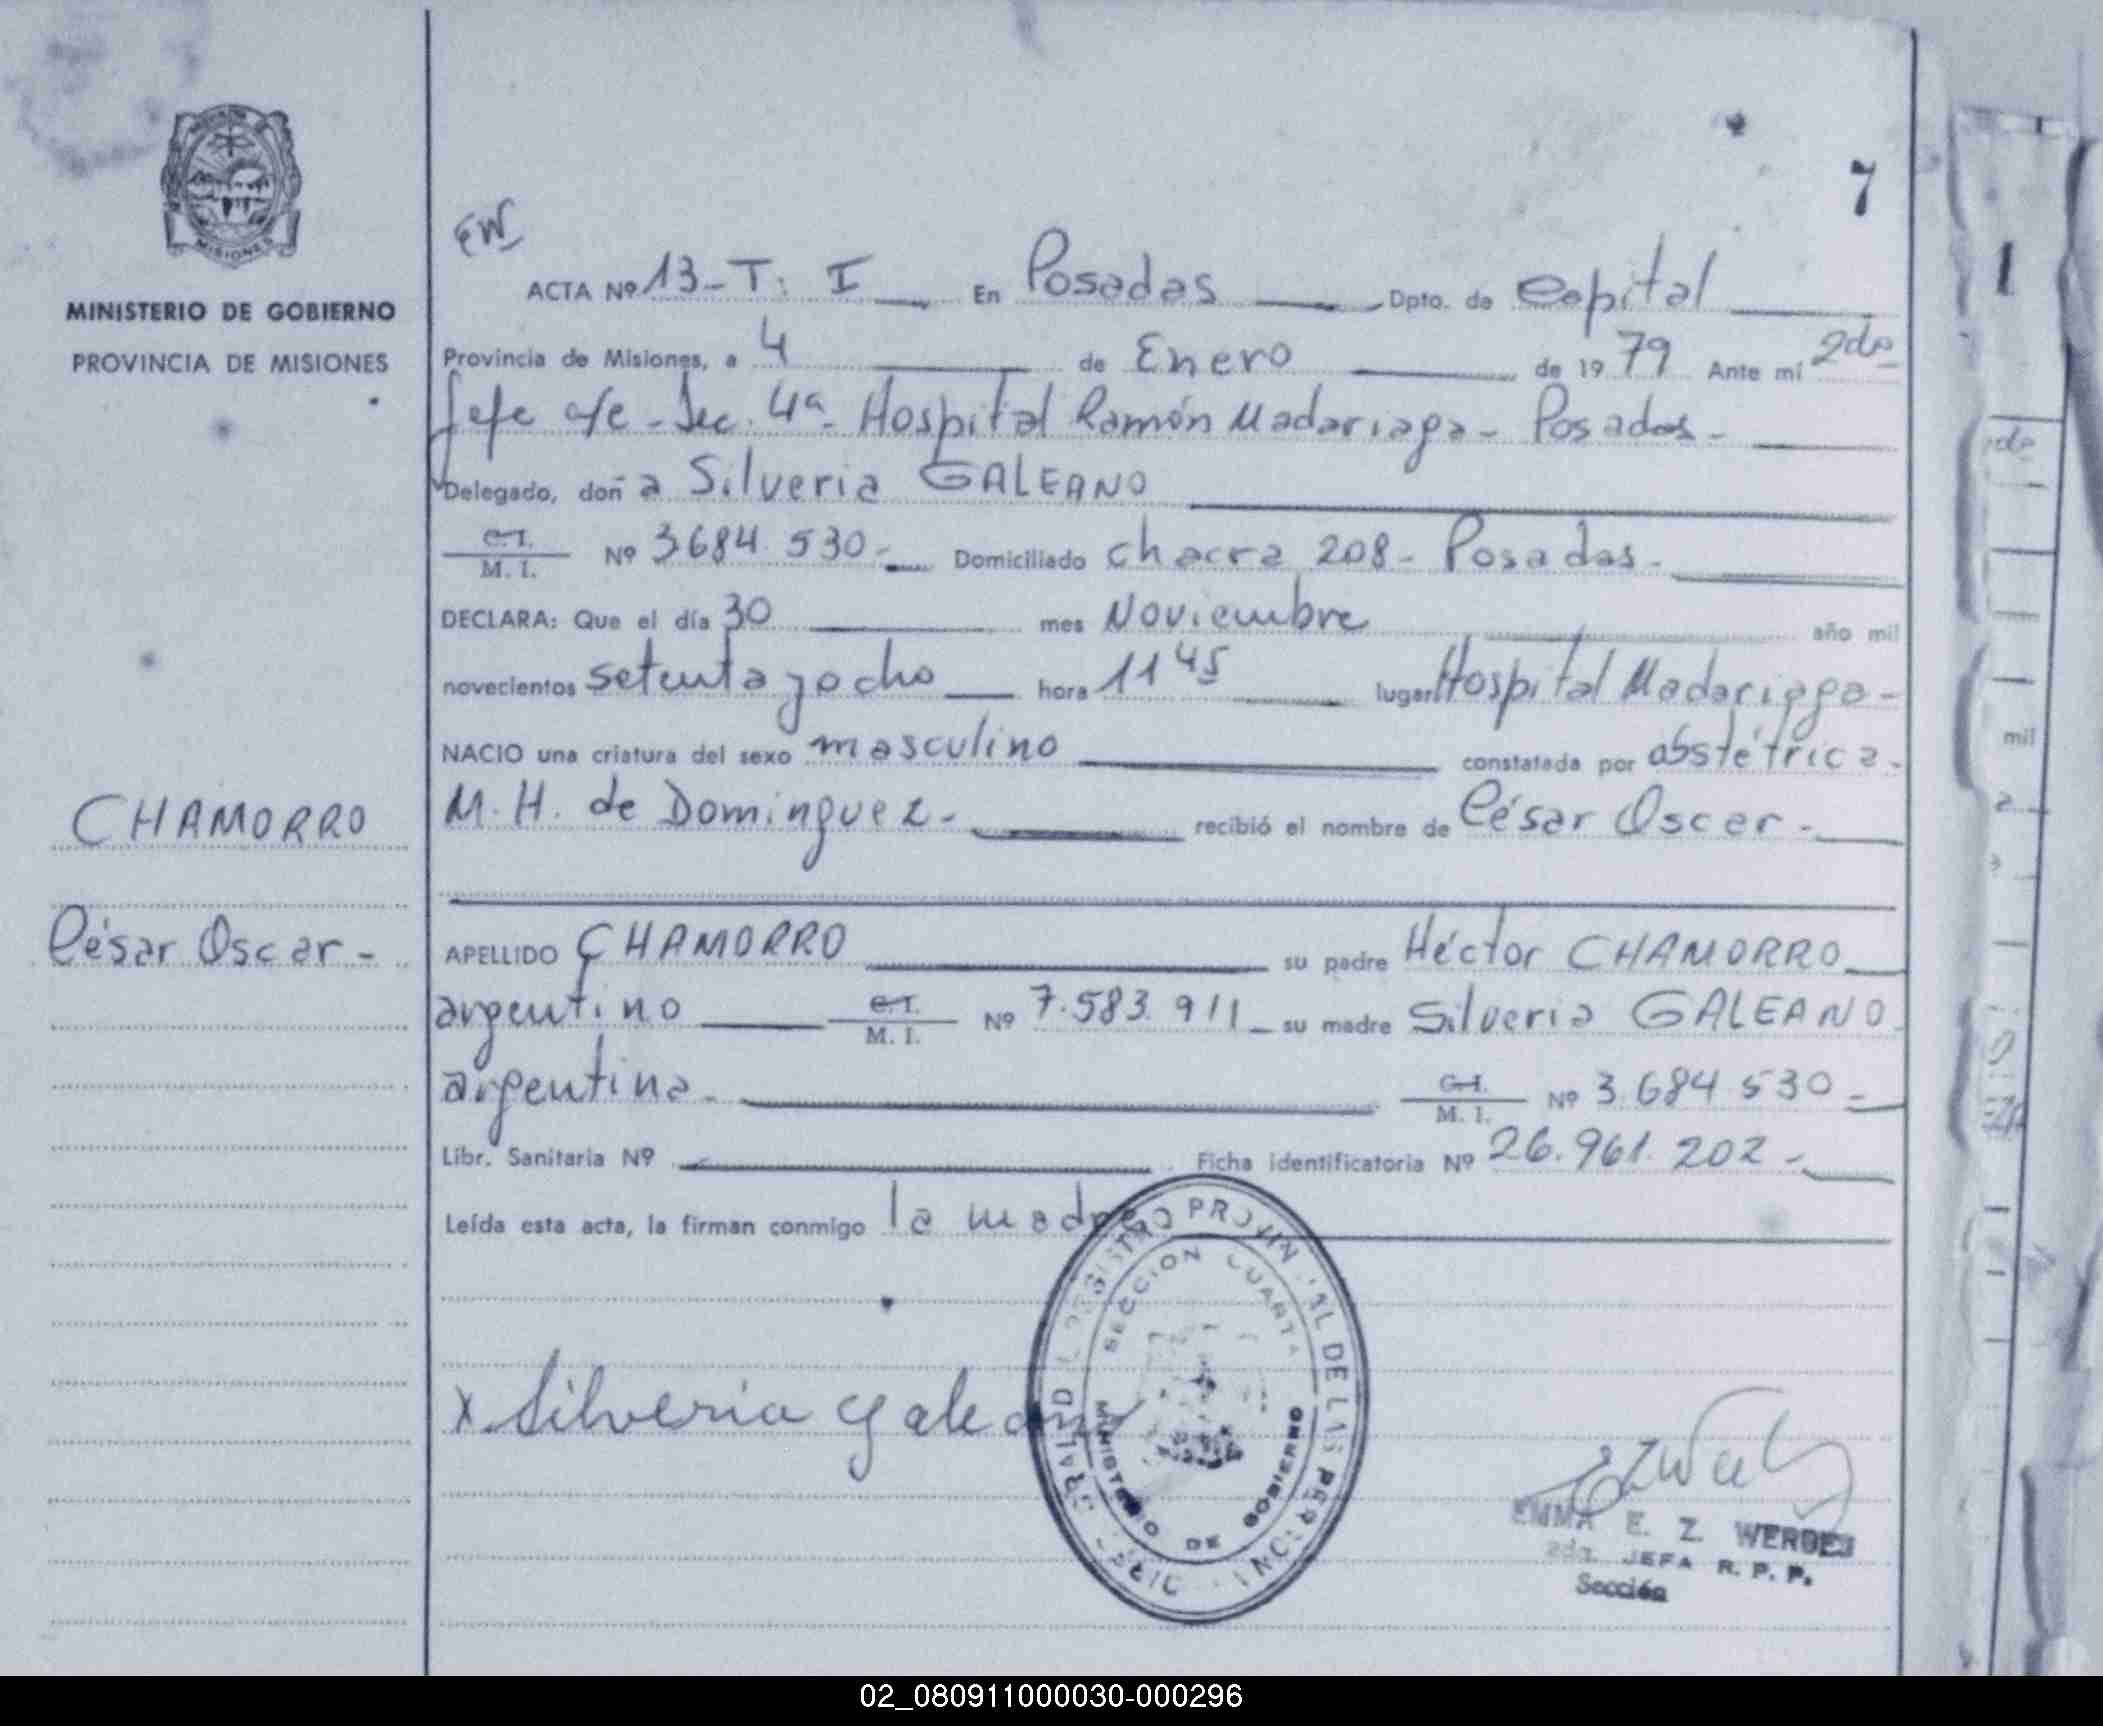 MISIONES
MINISTERIO DE GOBIERNO
PROVINCIA DE MISIONES
CHAMORRO
César Oscar -
7
EW
ACTA Nº 13 - T: I En Posadas Dpto. de Capital
Provincia de Misiones, a 4 de Enero de 1979 Ante mí 2da
Jefe a/c - Sec. 4ª - Hospital Ramón Madariaga - Posadas -
Delegado, doña Silveria GALEANO
C.I.
M. I. Nº 3.684.530 - Domiciliado chacra 208 - Posadas -
DECLARA: Que el día 30 mes Noviembre año mil
novecientos setenta y ocho hora 11 45 lugar Hospital Madariaga -
NACIO una criatura del sexo masculino constatada por obstétrica -
M. H. de Dominguez - recibió el nombre de César Oscar -
APELLIDO CHAMORRO su padre Héctor CHAMORRO
argentino C.I.
M. I. Nº 7.583.911 - su madre Silveria GALEANO
argentina - C.I.
M. I. Nº 3.684.530 -
Libr. Sanitaria Nº Ficha identificatoria Nº 26.961.202 -
Leída esta acta, la firman conmigo la madre
SECCION CUARTA
MINISTERIO DE GOBIERNO
x Silveria Galeano
EMMA E. Z. WERDES
2da. JEFA R. P. P.
Sección
1
mil
02_080911000030-000296